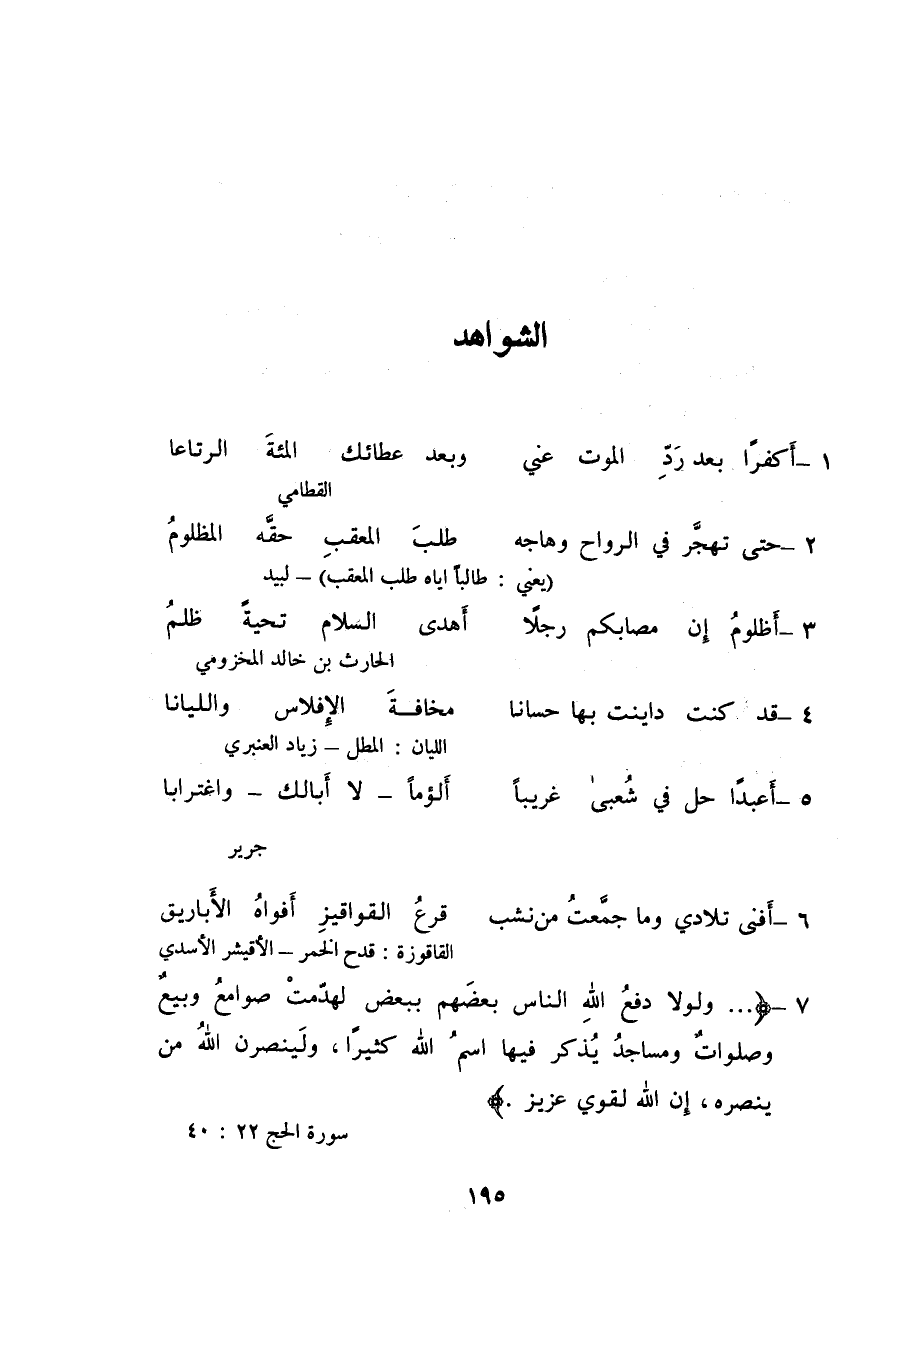 الشواهد
١ ـ أكفرًا بعد رَدِّ الموت عني وبعد عطائك المئةَ الرتاعا
القطامي
٢ ـ حتى تهجَّر في الرواح وهاجه طلبَ المعقبِ حقَّه المظلومُ
(يعني : طالباً اياه طلب المعقب) ـ لبيد
٣ ـ أَظلومُ إن مصابكم رجلًا أَهدى السلام تحيةً ظلمُ
الحارث بن خالد المخزومي
٤ ـ قد كنت داينت بها حسانا مخافـةَ الإِفلاس والليانا
الليان : المطل ـ زياد العنبري
٥ ـ أَعبدًا حل في شُعبىٰ غريباً أَلؤماً ـ لا أَبالك ـ واغترابا
جرير
٦ ـ أَفنى تلادي وما جمَّعتُ من نشب قرعُ القواقيزِ أَفواهُ الأَباريق
القاقوزة : قدح الخمر ـ الأقيشر الأسدي
٧ ـ ﴿... ولولا دفعُ اللهِ الناس بعضَهم ببعض لهدّمتْ صوامعُ وبيعٌ
وصلواتٌ ومساجدُ يُذكر فيها اسمُ الله كثيرًا، ولَينصرن اللهُ من
ينصره، إن الله لقوي عزيز .﴾
سورة الحج ٢٢ : ٤٠
١٩٥